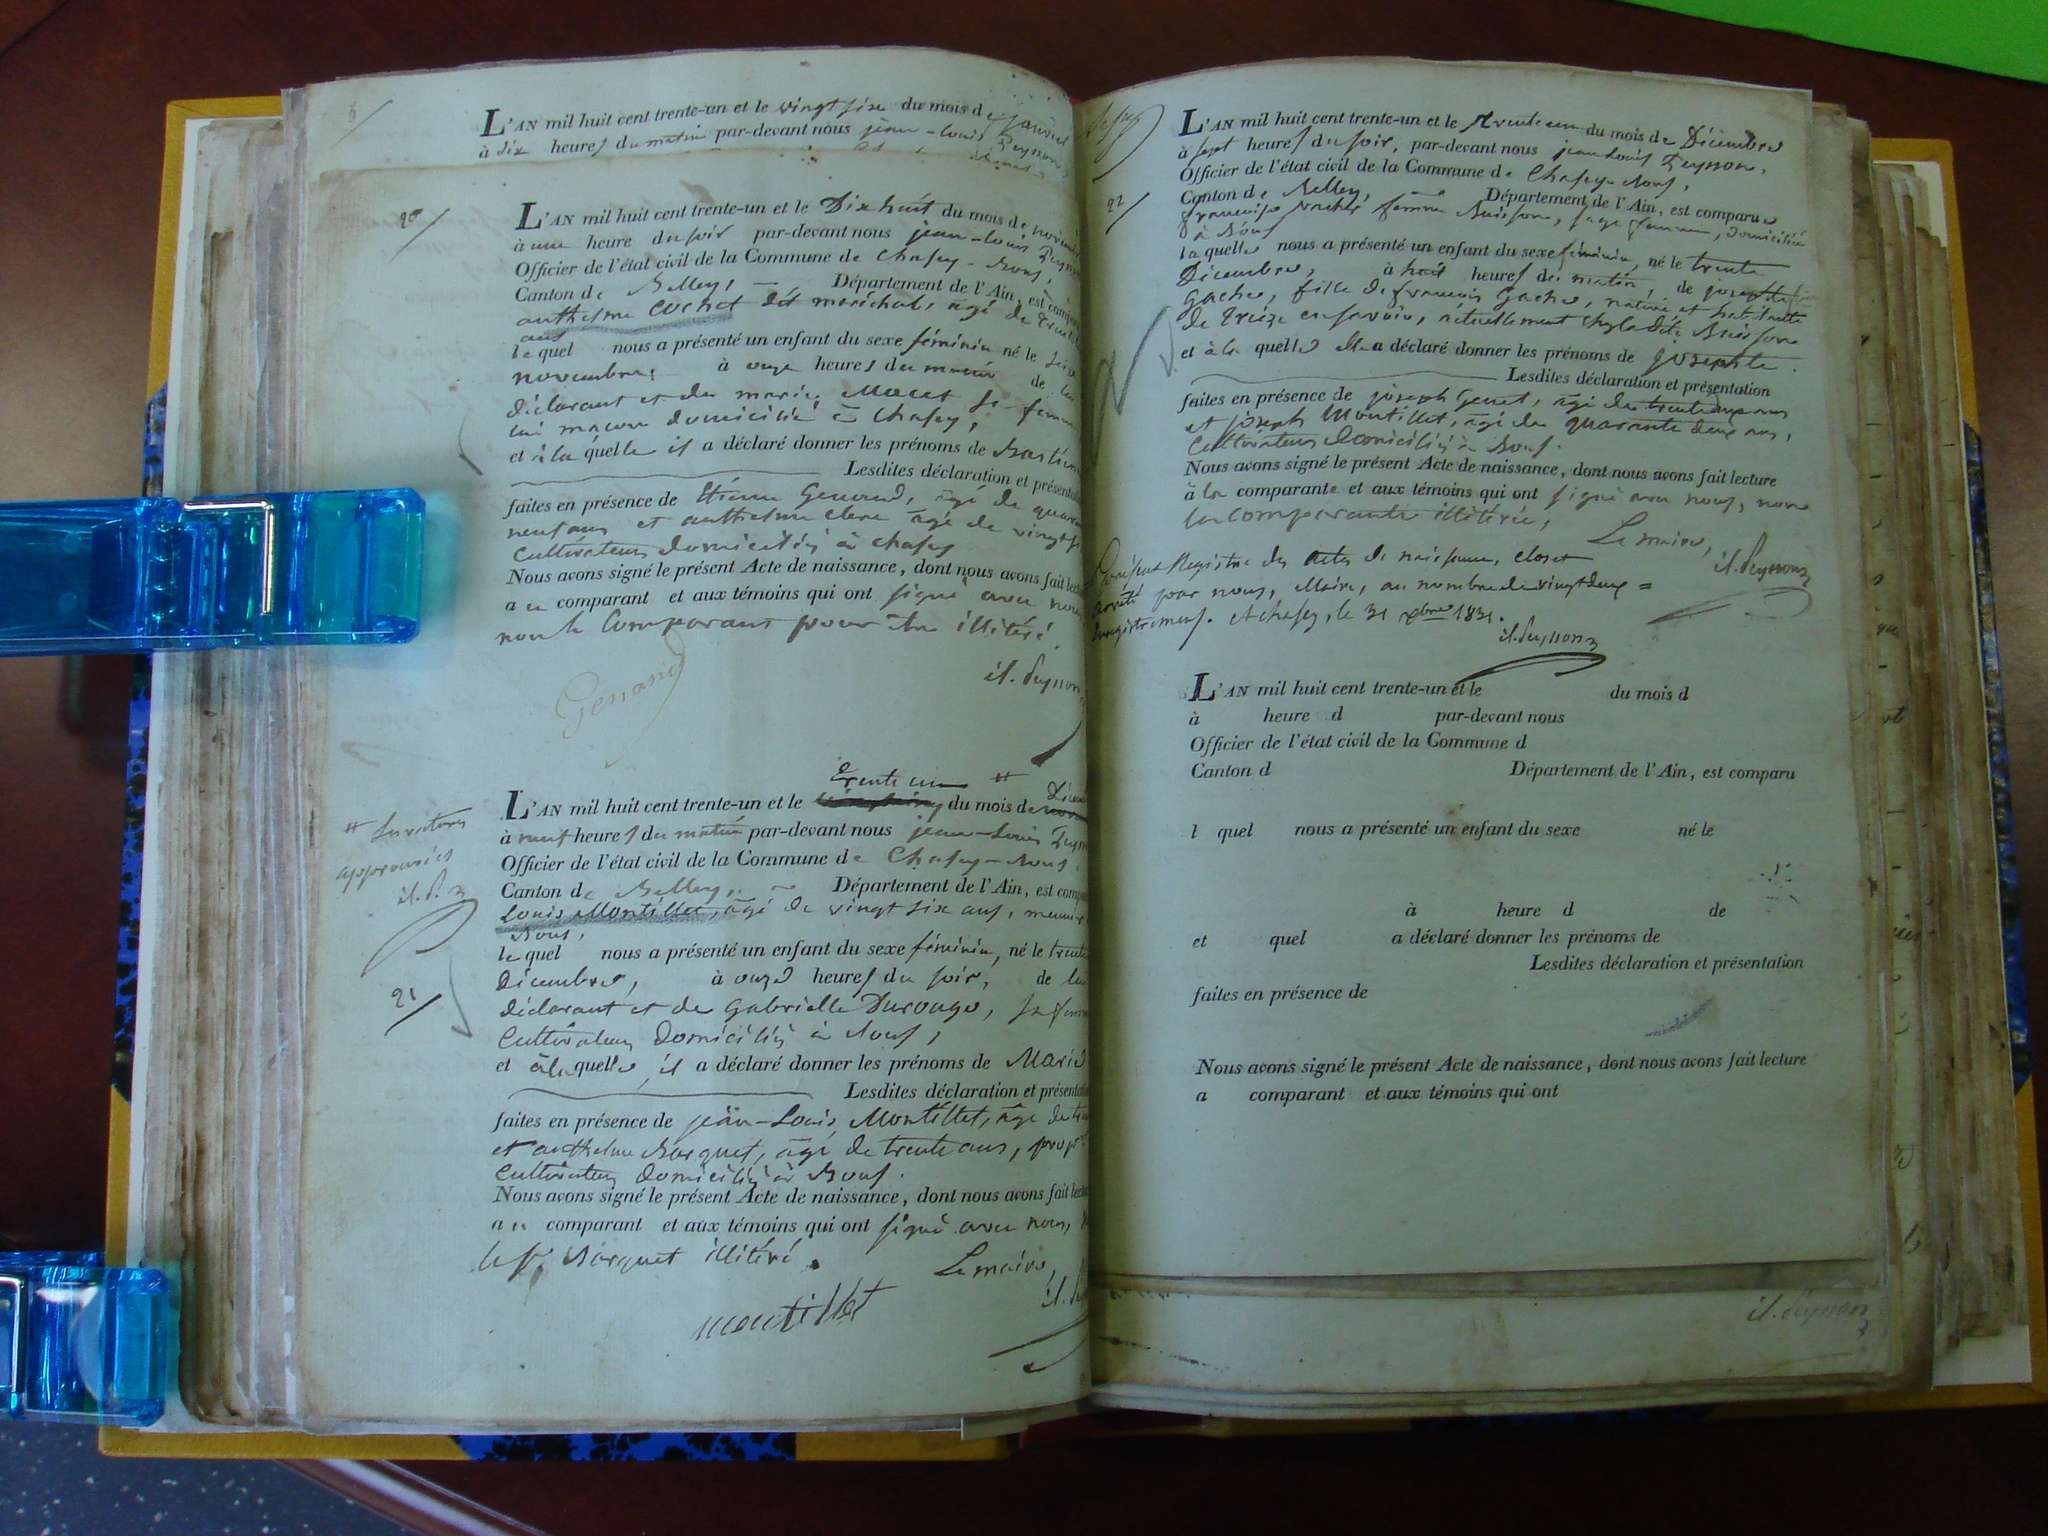 6
L'AN mil huit cent trente-un et le vingt six du mois de Janvier
à dix heures du matin par-devant nous jean-Louis Peysson
20
L'AN mil huit cent trente-un et le Dix huit du mois de
à une heure du soir par-devant nous jean-Louis
Officier de l'état civil de la Commune de Chasey-Bons,
Canton de Belley, Département de l'Ain, est
anthelme Cochet dit maréchal, agé de
ans
lequel nous a présenté un enfant du sexe féminin né le
novembre, à onze heures du matin de lui
déclarant et de marie Maret sa femme
lui maçon domicilié à Chasey,
et à la quelle il a déclaré donner les prénoms de
Lesdites déclaration et
faites en présence de Etienne Genand, âgé de
neuf ans et anthelme clerc âgé de
Cultivateurs domiciliés à chasey
Nous avons signé le présent Acte de naissance, dont nous avons fait
au comparant et aux témoins qui ont signé avec nous
non le Comparant pour être illitéré.
Genand
jl. Peysson
trente un #
L'AN mil huit cent trente-un et le du mois de
à neuf heures du matin par-devant nous jean-Louis
Officier de l'état civil de la Commune de Chasey-Bons.
Canton de Belley, Département de l'Ain, est
Louis Montillet, âgé de vingt six ans,
Bons,
lequel nous a présenté un enfant du sexe féminin, né le trente
Décembre, à onze heures du soir, de lui
déclarant et de Gabrielle sa femme
Cultivateurs domiciliés à Bons,
et à la quelle il a déclaré donner les prénoms de Marie
Lesdites déclaration et
faites en présence de jean-Louis Montillet, âgé de
et anthelme Borquet, âgé de trente ans,
Cultivateurs domiciliés à Bons.
Nous avons signé le présent Acte de naissance, dont nous avons fait
au comparant et aux témoins qui ont signé avec nous,
le Sr. Borquet illitéré.
Le maire,
montillet
# Surratures
approuvées
jl. P.
21
22
L'AN mil huit cent trente-un et le trente un du mois de Décembre
à sept heures du soir, par-devant nous jean Louis Peysson,
Officier de l'état civil de la Commune de Chasey-Bons,
Canton de Belley, Département de l'Ain, est comparue
françoise femme Buisson, sage femme, domiciliée
à Bons
laquelle nous a présenté un enfant du sexe féminin, né le trente
Décembre, à huit heures du matin, de josephte
Gache, fille de françois Gache, native et habitante
de en Savoie, actuellement chez ladite Buisson
et à la quelle elle a déclaré donner les prénoms de josephte.
Lesdites déclaration et présentation
faites en présence de joseph Genet, âgé de ans
et joseph Montillet, âgé de quarante deux ans,
Cultivateurs domiciliés à Bons.
Nous avons signé le présent Acte de naissance, dont nous avons fait lecture
à la comparante et aux témoins qui ont signé avec nous, non
la Comparante illitérée,
Le maire,
jl. Peysson
Le présent Registre des actes de naissance, clos et
arrêté par nous, Maire, au nombre de vingt deux =
Enregistremens. A chasey, le 31 xbre 1831.
jl. Peysson
L'AN mil huit cent trente-un et le du mois d
à heure d par-devant nous
Officier de l'état civil de la Commune d
Canton d Département de l'Ain, est comparu
l quel nous a présenté un enfant du sexe né le
à heure d de
et quel a déclaré donner les prénoms de
Lesdites déclaration et présentation
faites en présence de
Nous avons signé le présent Acte de naissance, dont nous avons fait lecture
a comparant et aux témoins qui ont
jl. Peysson